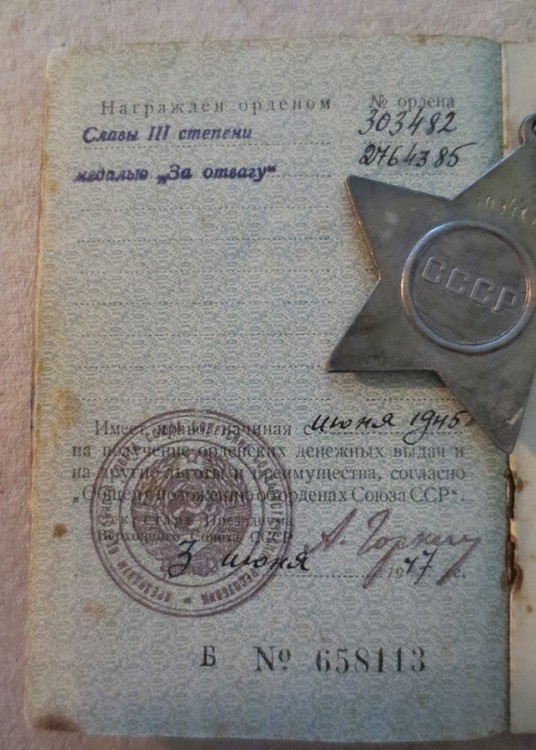 Награжден орденом
№ ордена
Славы III степени
303482
медалью „За отвагу“
2764385
СССР
Имеет право, начиная с июня 1945 г.
на получение орденских денежных выдач и
на другие льготы и преимущества, согласно
„Общему положению об орденах Союза ССР“.
Секретарь Президиума
Верховного Совета СССР
А. Горкин
3 июня 1947 г.
Б № 658113